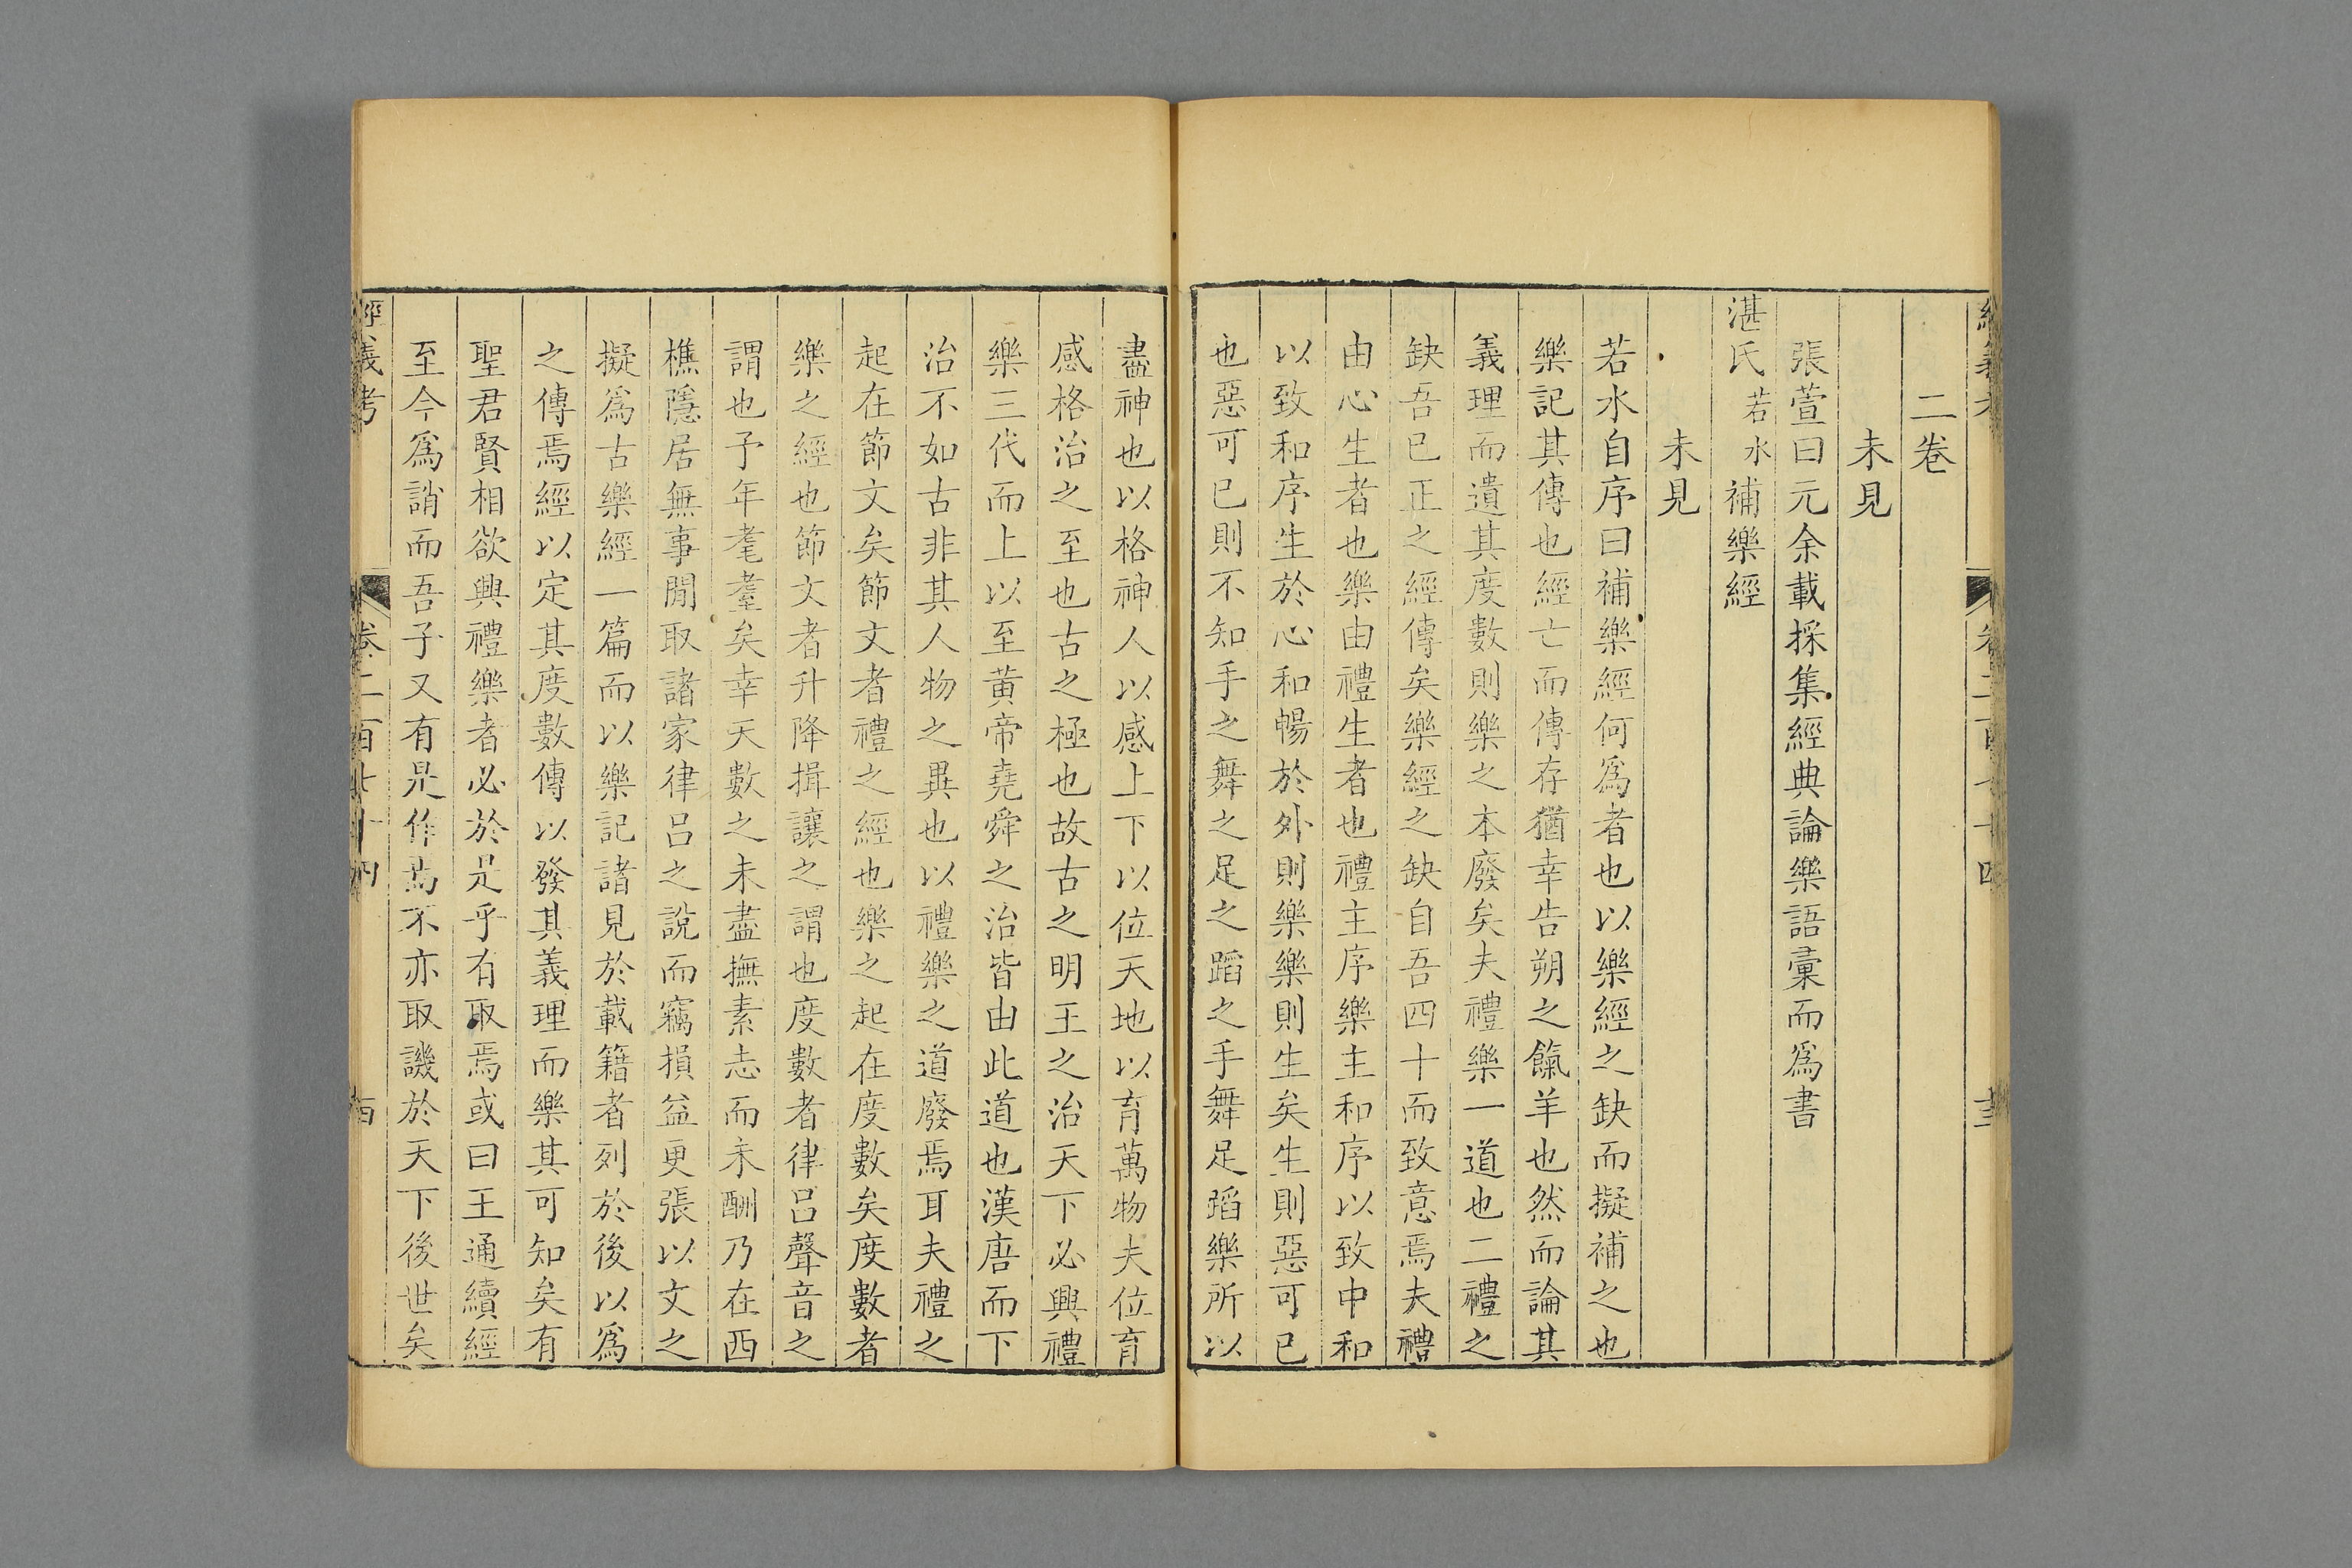 二卷
未見
張萱曰元余載採集經典論樂語彙而爲書
湛氏若水補樂經
未見
若水自序曰補樂經何爲者也以樂經之缺而擬補之也
樂記其傳也經亡而傳存猶幸告朔之餼羊也然而論其
義理而遺其度數則樂之本廢矣夫禮樂一道也二禮之
缺吾已正之經傳矣樂經之缺自吾四十而致意焉夫禮
由心生者也樂由禮生者也禮主序樂主和序以致中和
以致和序生於心和暢於外則樂樂則生矣生則惡可已
也惡可已則不知手之舞之足之蹈之手舞足蹈樂所以
盡神也以格神人以感上下以位天地以育萬物夫位育
感格治之至也古之極也故古之明王之治天下必興禮
樂三代而上以至黃帝堯舜之治皆由此道也漢唐而下
治不如古非其人物之異也以禮樂之道廢焉耳夫禮之
起在節文矣節文者禮之經也樂之起在度數矣度數者
樂之經也節文者升降揖讓之謂也度數者律呂聲音之
謂也予年耄耋矣幸天數之未盡撫素志而未酬乃在西
樵隱居無事閒取諸家律呂之說而竊損益更張以文之
擬爲古樂經一篇而以樂記諸見於載籍者列於後以爲
之傳焉經以定其度數傳以發其義理而樂其可知矣有
聖君賢相欲興禮樂者必於是乎有取焉或曰王通續經
至今爲誚而吾子又有是作焉不亦取譏於天下後世矣
經義考
卷二百七十四